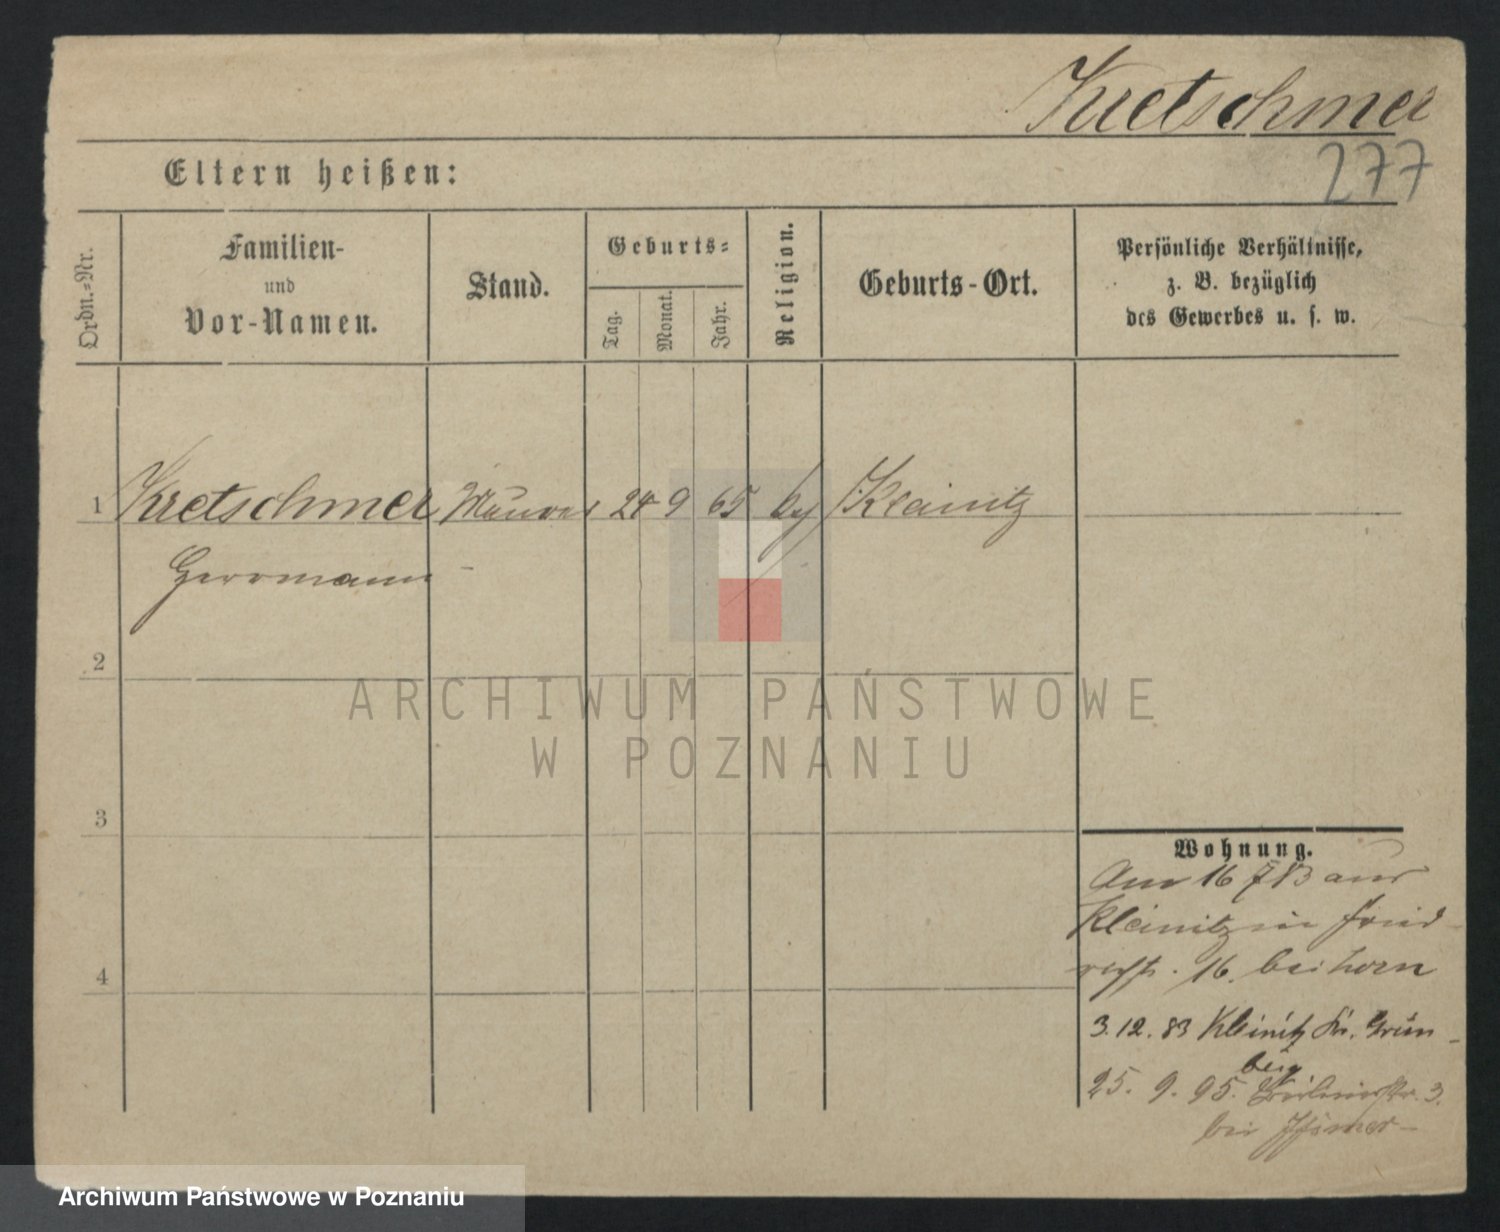 Kretschmer
277
Eltern heißen:
Ordn.-Nr.
Familien-
und
Vor-Namen.
Stand.
Geburts-
Tag.
Monat.
Jahr.
Religion.
Geburts-Ort.
Persönliche Verhältnisse,
z. B. bezüglich
des Gewerbes u. s. w.
1 Kretschmer Maurer 24 9 65 Kleinitz
Herrmann
2
3
4
Wohnung.
Am 16 7 83 aus
Kleinitz in Fried-
richstr. 16. bei Horn
3.12.83 Kleinitz Kr. Grün-
berg
25. 9. 95. 3.
bei
ARCHIWUM PAŃSTWOWE
W POZNANIU
Archiwum Państwowe w Poznaniu